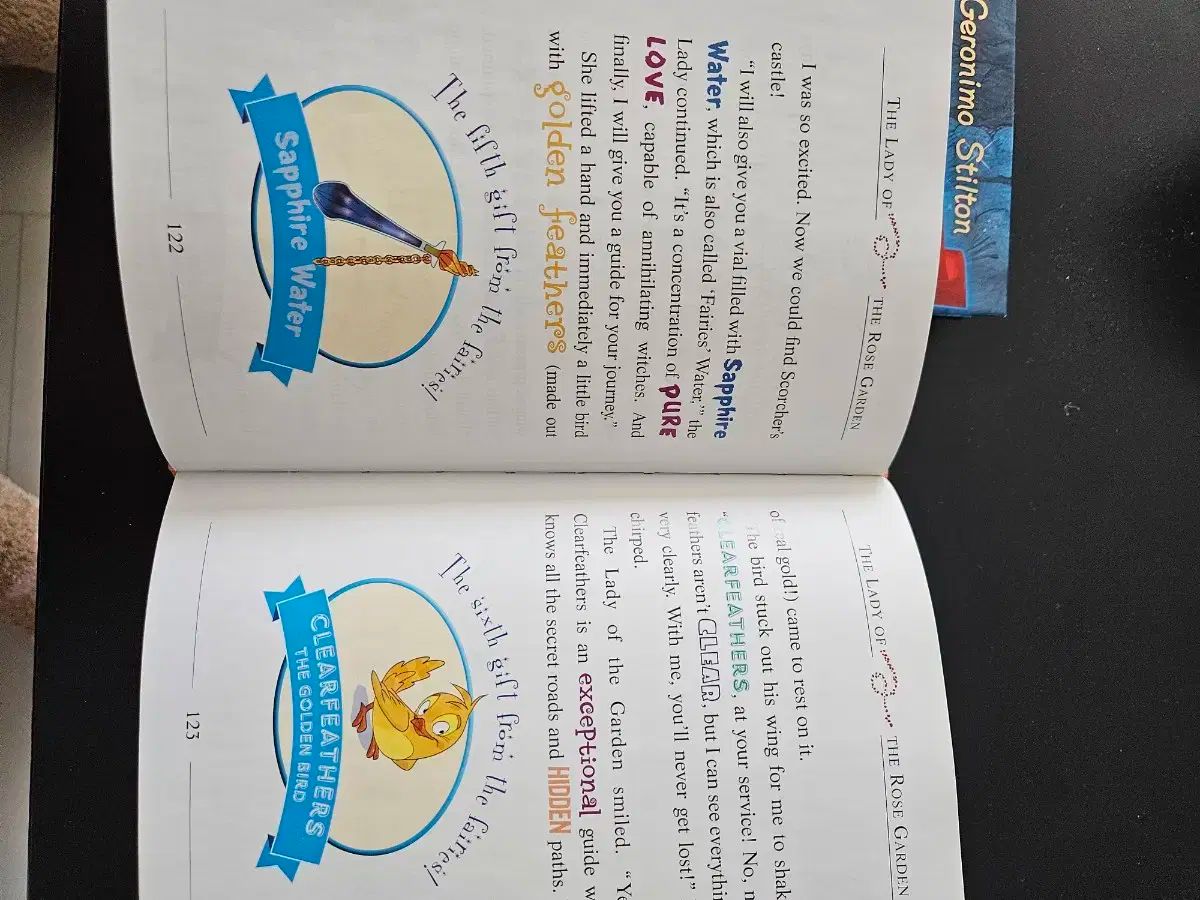 Geronimo Stilton
THE LADY OF THE ROSE GARDEN
I was so excited. Now we could find Scorcher's
castle!
"I will also give you a vial filled with Sapphire
Water, which is also called 'Fairies' Water,'" the
Lady continued. "It's a concentration of PURE
LOVE, capable of annihilating witches. And
finally, I will give you a guide for your journey."
She lifted a hand and immediately a little bird
with golden feathers (made out
The fifth gift from the fairies!
Sapphire Water
122
THE LADY OF THE ROSE GARDEN
of real gold!) came to rest on it.
The bird stuck out his wing for me to shak
"CLEARFEATHERS, at your service! No, m
feathers aren't CLEAR, but I can see everythi
very clearly. With me, you'll never get lost!"
chirped.
The Lady of the Garden smiled. "Ye
Clearfeathers is an exceptional guide w
knows all the secret roads and HIDDEN paths.
The sixth gift from the fairies!
CLEARFEATHERS
THE GOLDEN BIRD
123